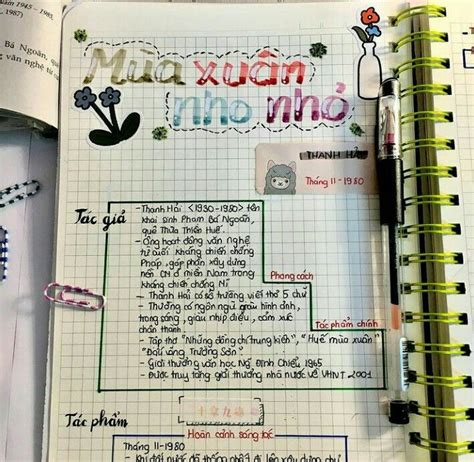 năm 1945 - 1985,
1987)
Bá Ngoãn,
văn nghệ từ
Mùa xuân
nho nhỏ
THANH HẢI
Tháng 11-1980
Tác giả
- Thanh Hải <1930-1980> tên
khai sinh Phạm Bá Ngoãn,
quê Thừa Thiên Huế.
- Ông hoạt động văn nghệ
từ cuối kháng chiến chống
Pháp, góp phần xây dựng
nền CM ở miền Nam trong
kháng chiến chống Mĩ
Phong cách
- Thanh Hải có sở trường viết thơ 5 chữ
- Thường có ngôn ngữ giàu hình ảnh,
trong sáng, giàu nhịp điệu, cảm xúc
chân thành.
Tác phẩm chính
- Tập thơ "Những đồng chí trung kiên", "Huế mùa xuân"
"Dấu võng Trường Sơn"
- Giải thưởng văn học Ng. Đình Chiểu, 1965
- Được truy tặng giải thưởng nhà nước về VHNT 2001
Tác phẩm
Hoàn cảnh sáng tác
Tháng 11-1980
- Khi đất nước đã thống nhất đi lên xây dựng chủ